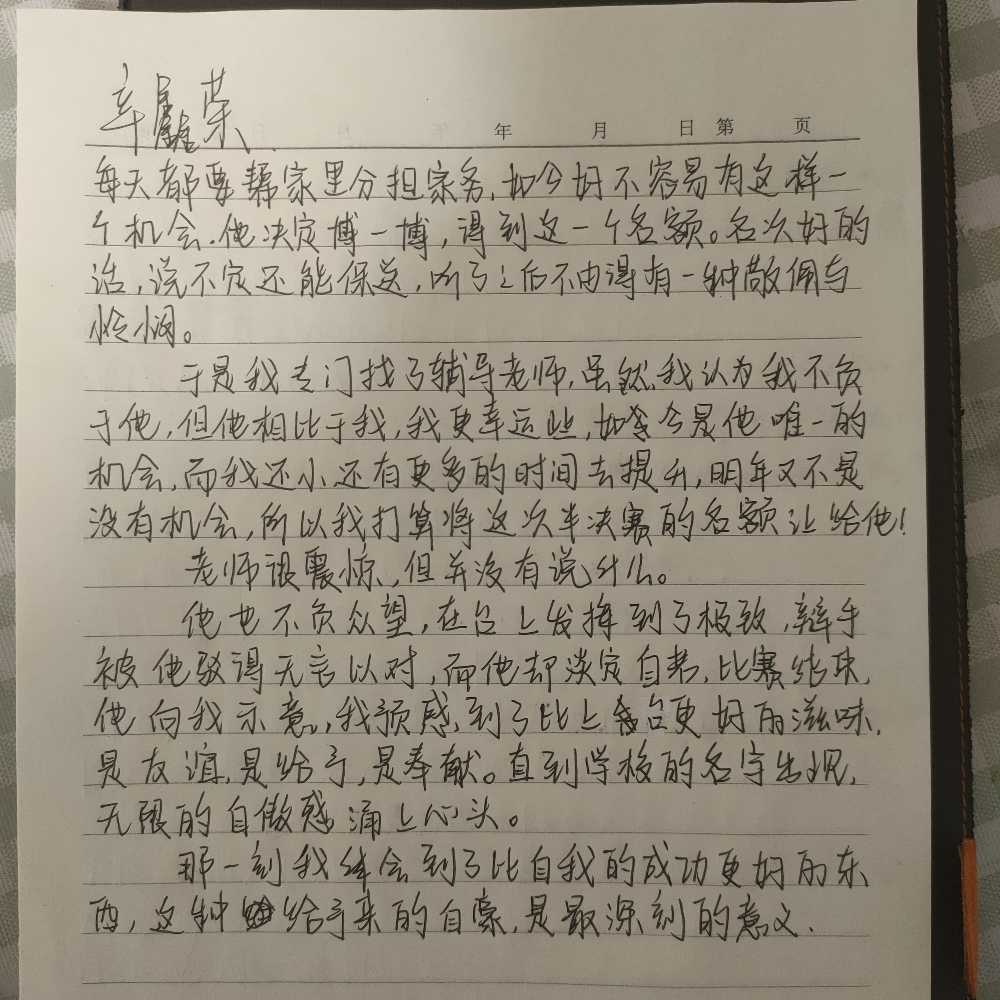 年 月 日 第 页
每天都要帮家里分担家务,如今好不容易有这样一
个机会.他决定博一博,得到这一个名额。名次好的
话,说不定还能保送,听了之后不由得有一种敬佩与
怜悯。
于是我专门找了辅导老师,虽然,我认为我不负
于他,但他相比于我,我更幸运些,如今是他唯一的
机会,而我还小,还有更多的时间去提升,明年又不是
没有机会,所以我打算将这次半决赛的名额让给他!
老师很震惊,但并没有说什么。
他也不负众望,在台上发挥到了极致,辩手
被他驳得无言以对,而他却淡定自若,比赛结束,
他向我示意,我预感到了比上台更好的滋味,
是友谊,是给予,是奉献。直到学校的名字出现,
无限的自傲感涌上心头。
那一刻我体会到了比自我的成功更好的东
西,这种给予来的自豪,是最深刻的意义.